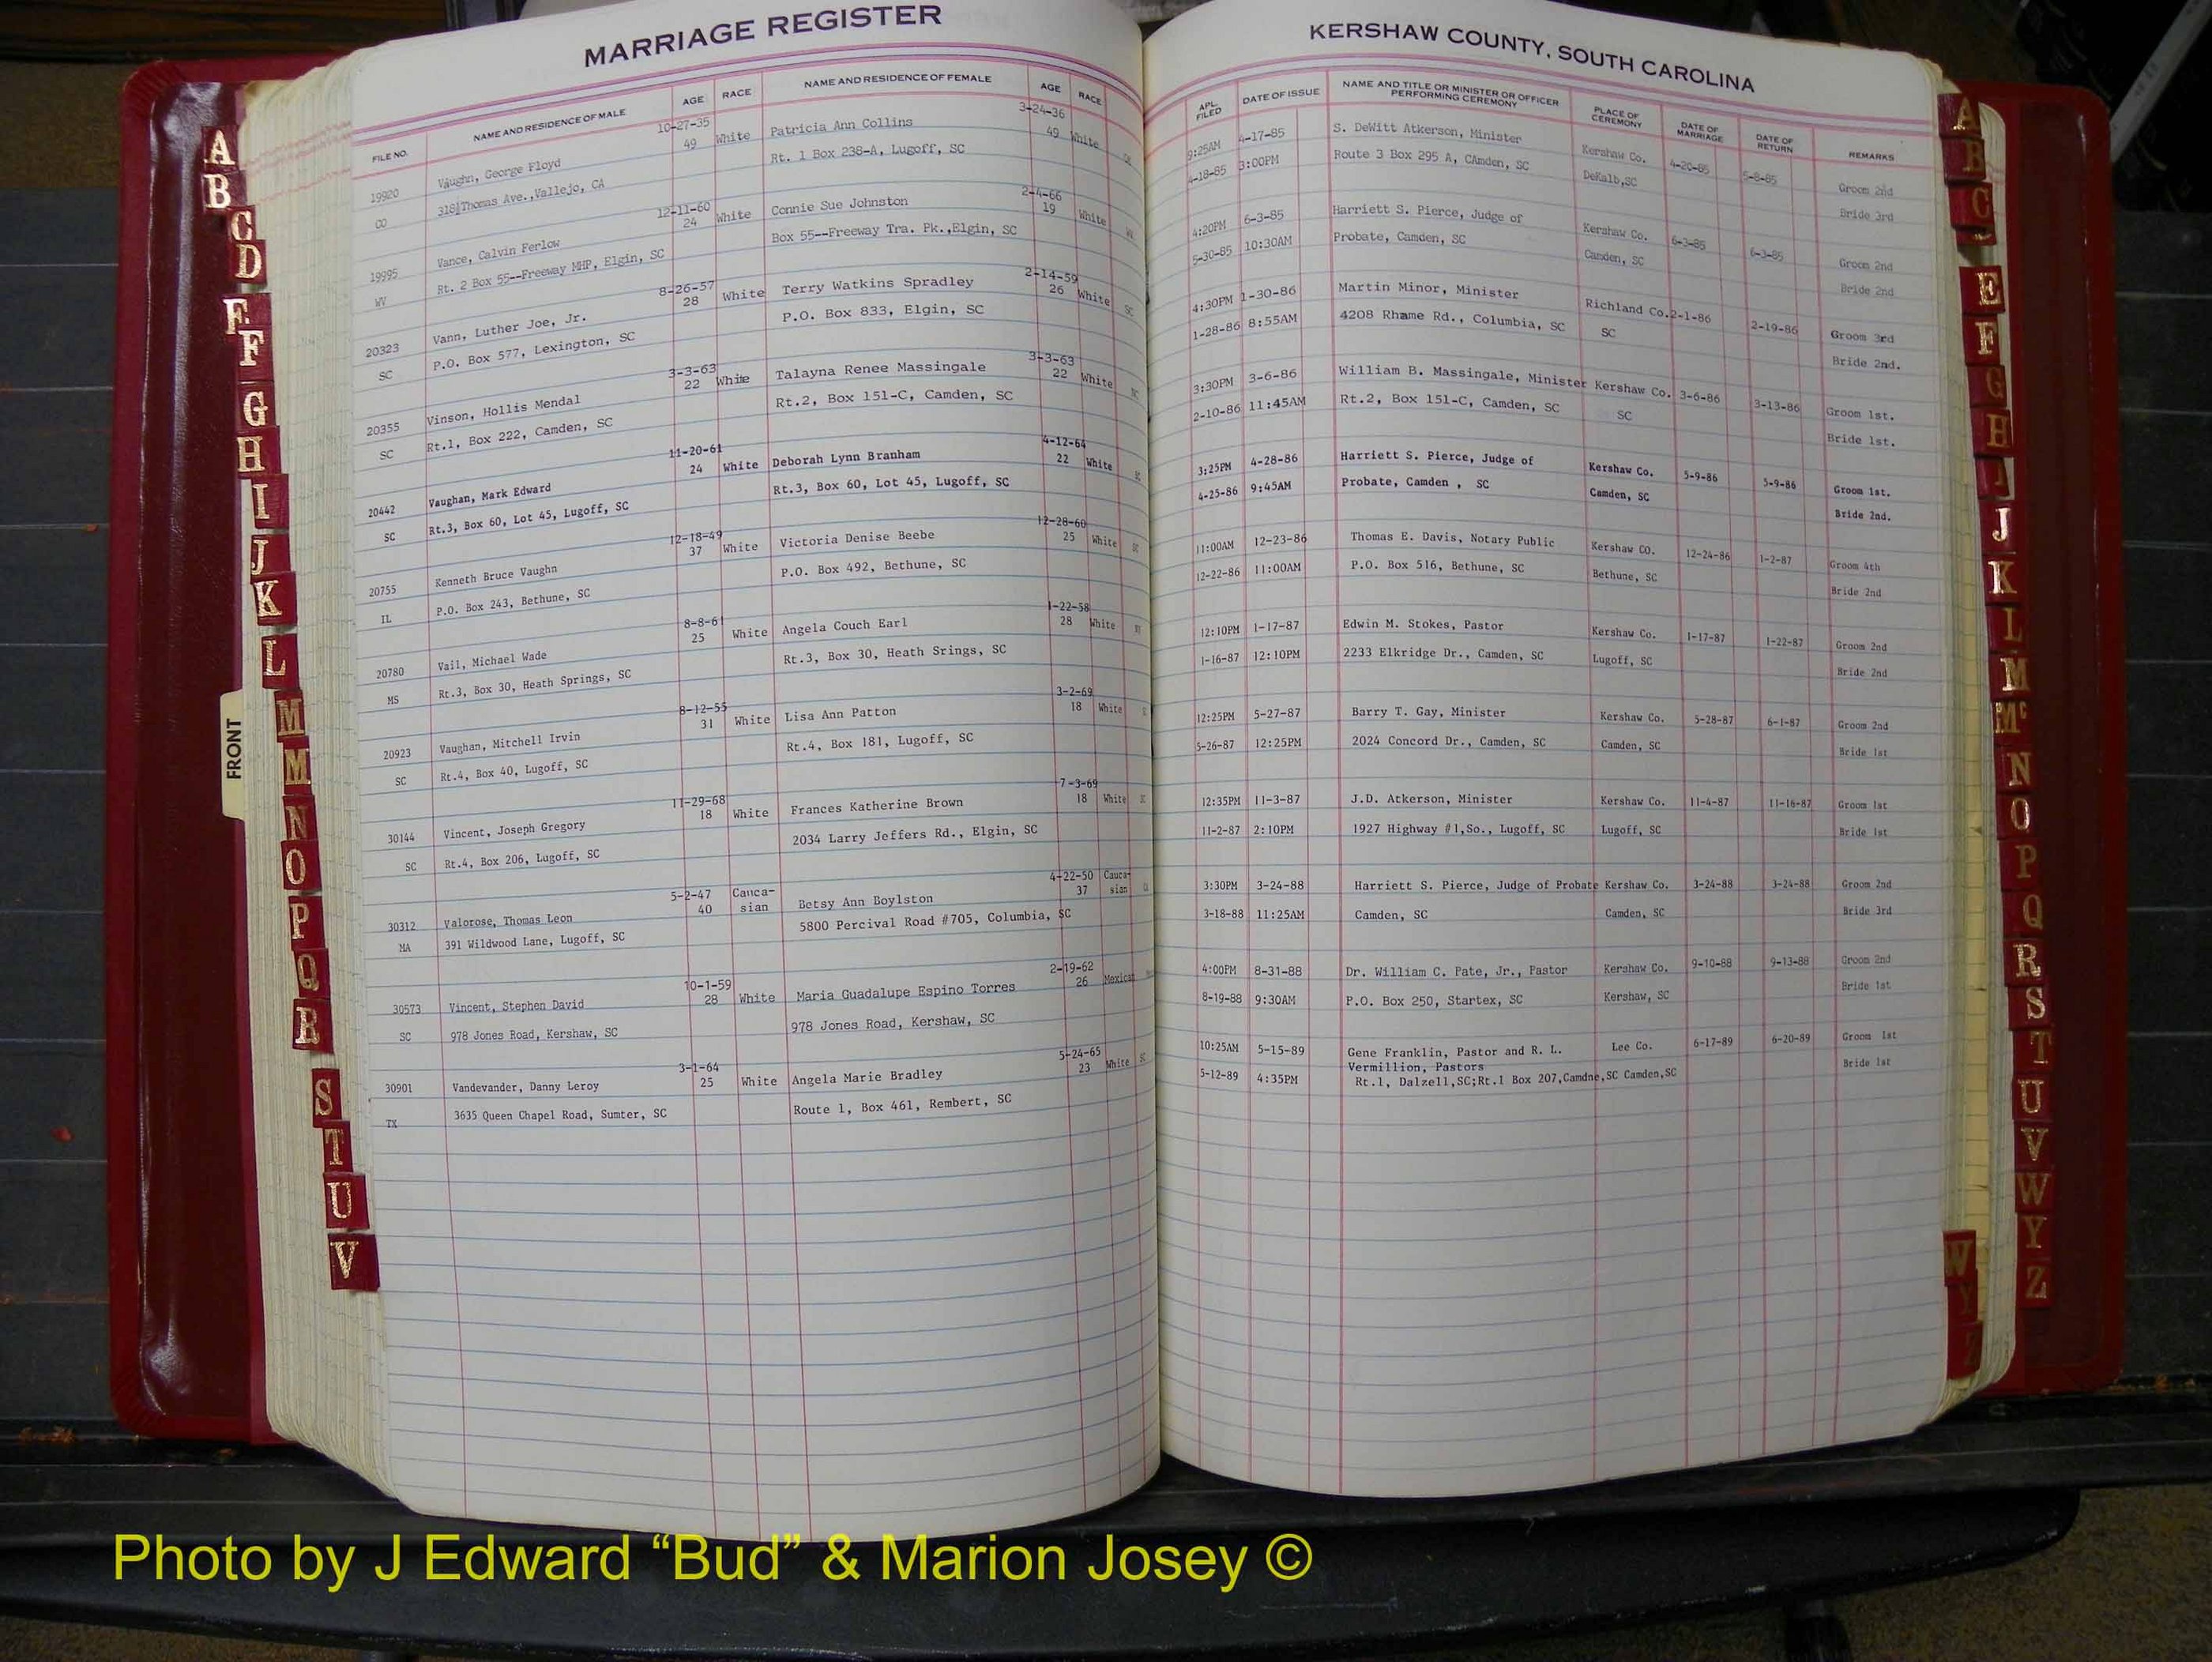 MARRIAGE REGISTER
FILE NO. NAME AND RESIDENCE OF MALE AGE RACE NAME AND RESIDENCE OF FEMALE AGE RACE
10-27-35 3-24-36
19920 Vaughn, George Floyd 49 White Patricia Ann Collins 49 White
CO 318½Thomas Ave.,Vallejo, CA Rt. 1 Box 238-A, Lugoff, SC
12-11-60 2-4-66
19995 Vance, Calvin Ferlow 24 White Connie Sue Johnston 19 White
WV Rt. 2 Box 55--Freeway MHP, Elgin, SC Box 55--Freeway Tra. Pk.,Elgin, SC
8-26-57 2-14-59
20323 Vann, Luther Joe, Jr. 28 White Terry Watkins Spradley 26 White SC
SC P.O. Box 577, Lexington, SC P.O. Box 833, Elgin, SC
3-3-63 3-3-63
20355 Vinson, Hollis Mendal 22 White Talayna Renee Massingale 22 White
SC Rt.1, Box 222, Camden, SC Rt.2, Box 151-C, Camden, SC
11-20-61 4-12-64
20442 Vaughan, Mark Edward 24 White Deborah Lynn Branham 22 White
SC Rt.3, Box 60, Lot 45, Lugoff, SC Rt.3, Box 60, Lot 45, Lugoff, SC
12-18-49 12-28-60
20755 Kenneth Bruce Vaughn 37 White Victoria Denise Beebe 25 White SC
IL P.O. Box 243, Bethune, SC P.O. Box 492, Bethune, SC
8-8-61 1-22-58
20780 Vail, Michael Wade 25 White Angela Couch Earl 28 White
MS Rt.3, Box 30, Heath Springs, SC Rt.3, Box 30, Heath Srings, SC
8-12-55 3-2-69
20923 Vaughan, Mitchell Irvin 31 White Lisa Ann Patton 18 White
SC Rt.4, Box 40, Lugoff, SC Rt.4, Box 181, Lugoff, SC
11-29-68 7-3-69
30144 Vincent, Joseph Gregory 18 White Frances Katherine Brown 18 White SC
SC Rt.4, Box 206, Lugoff, SC 2034 Larry Jeffers Rd., Elgin, SC
5-2-47 Cauca- 4-22-50 Cauca-
30312 Valorose, Thomas Leon 40 sian Betsy Ann Boylston 37 sian
MA 391 Wildwood Lane, Lugoff, SC 5800 Percival Road #705, Columbia, SC
10-1-59 2-19-62
30573 Vincent, Stephen David 28 White Maria Guadalupe Espino Torres 26 Mexican
SC 978 Jones Road, Kershaw, SC 978 Jones Road, Kershaw, SC
3-1-64 5-24-65
30901 Vandevander, Danny Leroy 25 White Angela Marie Bradley 23 White SC
TX 3635 Queen Chapel Road, Sumter, SC Route 1, Box 461, Rembert, SC
KERSHAW COUNTY, SOUTH CAROLINA
APL. FILED DATE OF ISSUE NAME AND TITLE OR MINISTER OR OFFICER PERFORMING CEREMONY PLACE OF CEREMONY DATE OF MARRIAGE DATE OF RETURN REMARKS
9:25AM 4-17-85 S. DeWitt Atkerson, Minister Kershaw Co. 4-20-85 5-8-85 Groom 2nd
4-18-85 3:00PM Route 3 Box 295 A, CAmden, SC DeKalb,SC Bride 3rd
4:20PM 6-3-85 Harriett S. Pierce, Judge of Kershaw Co. 6-3-85 6-3-85 Groom 2nd
5-30-85 10:30AM Probate, Camden, SC Camden, SC Bride 2nd
4:30PM 1-30-86 Martin Minor, Minister Richland Co. 2-1-86 2-19-86 Groom 3rd
1-28-86 8:55AM 4208 Rhame Rd., Columbia, SC SC Bride 2nd.
3:30PM 3-6-86 William B. Massingale, Minister Kershaw Co. 3-6-86 3-13-86 Groom 1st.
2-10-86 11:45AM Rt.2, Box 151-C, Camden, SC SC Bride 1st.
3:25PM 4-28-86 Harriett S. Pierce, Judge of Kershaw Co. 5-9-86 5-9-86 Groom 1st.
4-25-86 9:45AM Probate, Camden , SC Camden, SC Bride 2nd.
11:00AM 12-23-86 Thomas E. Davis, Notary Public Kershaw CO. 12-24-86 1-2-87 Groom 4th
12-22-86 11:00AM P.O. Box 516, Bethune, SC Bethune, SC Bride 2nd
12:10PM 1-17-87 Edwin M. Stokes, Pastor Kershaw Co. 1-17-87 1-22-87 Groom 2nd
1-16-87 12:10PM 2233 Elkridge Dr., Camden, SC Lugoff, SC Bride 2nd
12:25PM 5-27-87 Barry T. Gay, Minister Kershaw Co. 5-28-87 6-1-87 Groom 2nd
5-26-87 12:25PM 2024 Concord Dr., Camden, SC Camden, SC Bride 1st
12:35PM 11-3-87 J.D. Atkerson, Minister Kershaw Co. 11-4-87 11-16-87 Groom 1st
11-2-87 2:10PM 1927 Highway #1,So., Lugoff, SC Lugoff, SC Bride 1st
3:30PM 3-24-88 Harriett S. Pierce, Judge of Probate Kershaw Co. 3-24-88 3-24-88 Groom 2nd
3-18-88 11:25AM Camden, SC Camden, SC Bride 3rd
4:00PM 8-31-88 Dr. William C. Pate, Jr., Pastor Kershaw Co. 9-10-88 9-13-88 Groom 2nd
8-19-88 9:30AM P.O. Box 250, Startex, SC Kershaw, SC Bride 1st
10:25AM 5-15-89 Gene Franklin, Pastor and R. L. Lee Co. 6-17-89 6-20-89 Groom 1st
Vermillion, Pastors
5-12-89 4:35PM Rt.1, Dalzell,SC;Rt.1 Box 207,Camdne,SC Camden,SC Bride 1st
A
B
C
D
E
F
G
H
I
J
K
L
M
M
N
O
P
Q
R
S
T
U
V
FRONT
A
B
C
E
F
G
H
I
J
K
L
M
Mc
N
O
P
Q
R
S
T
U
V
W
Y
Z
W
Y
Z
Photo by J Edward “Bud” & Marion Josey ©